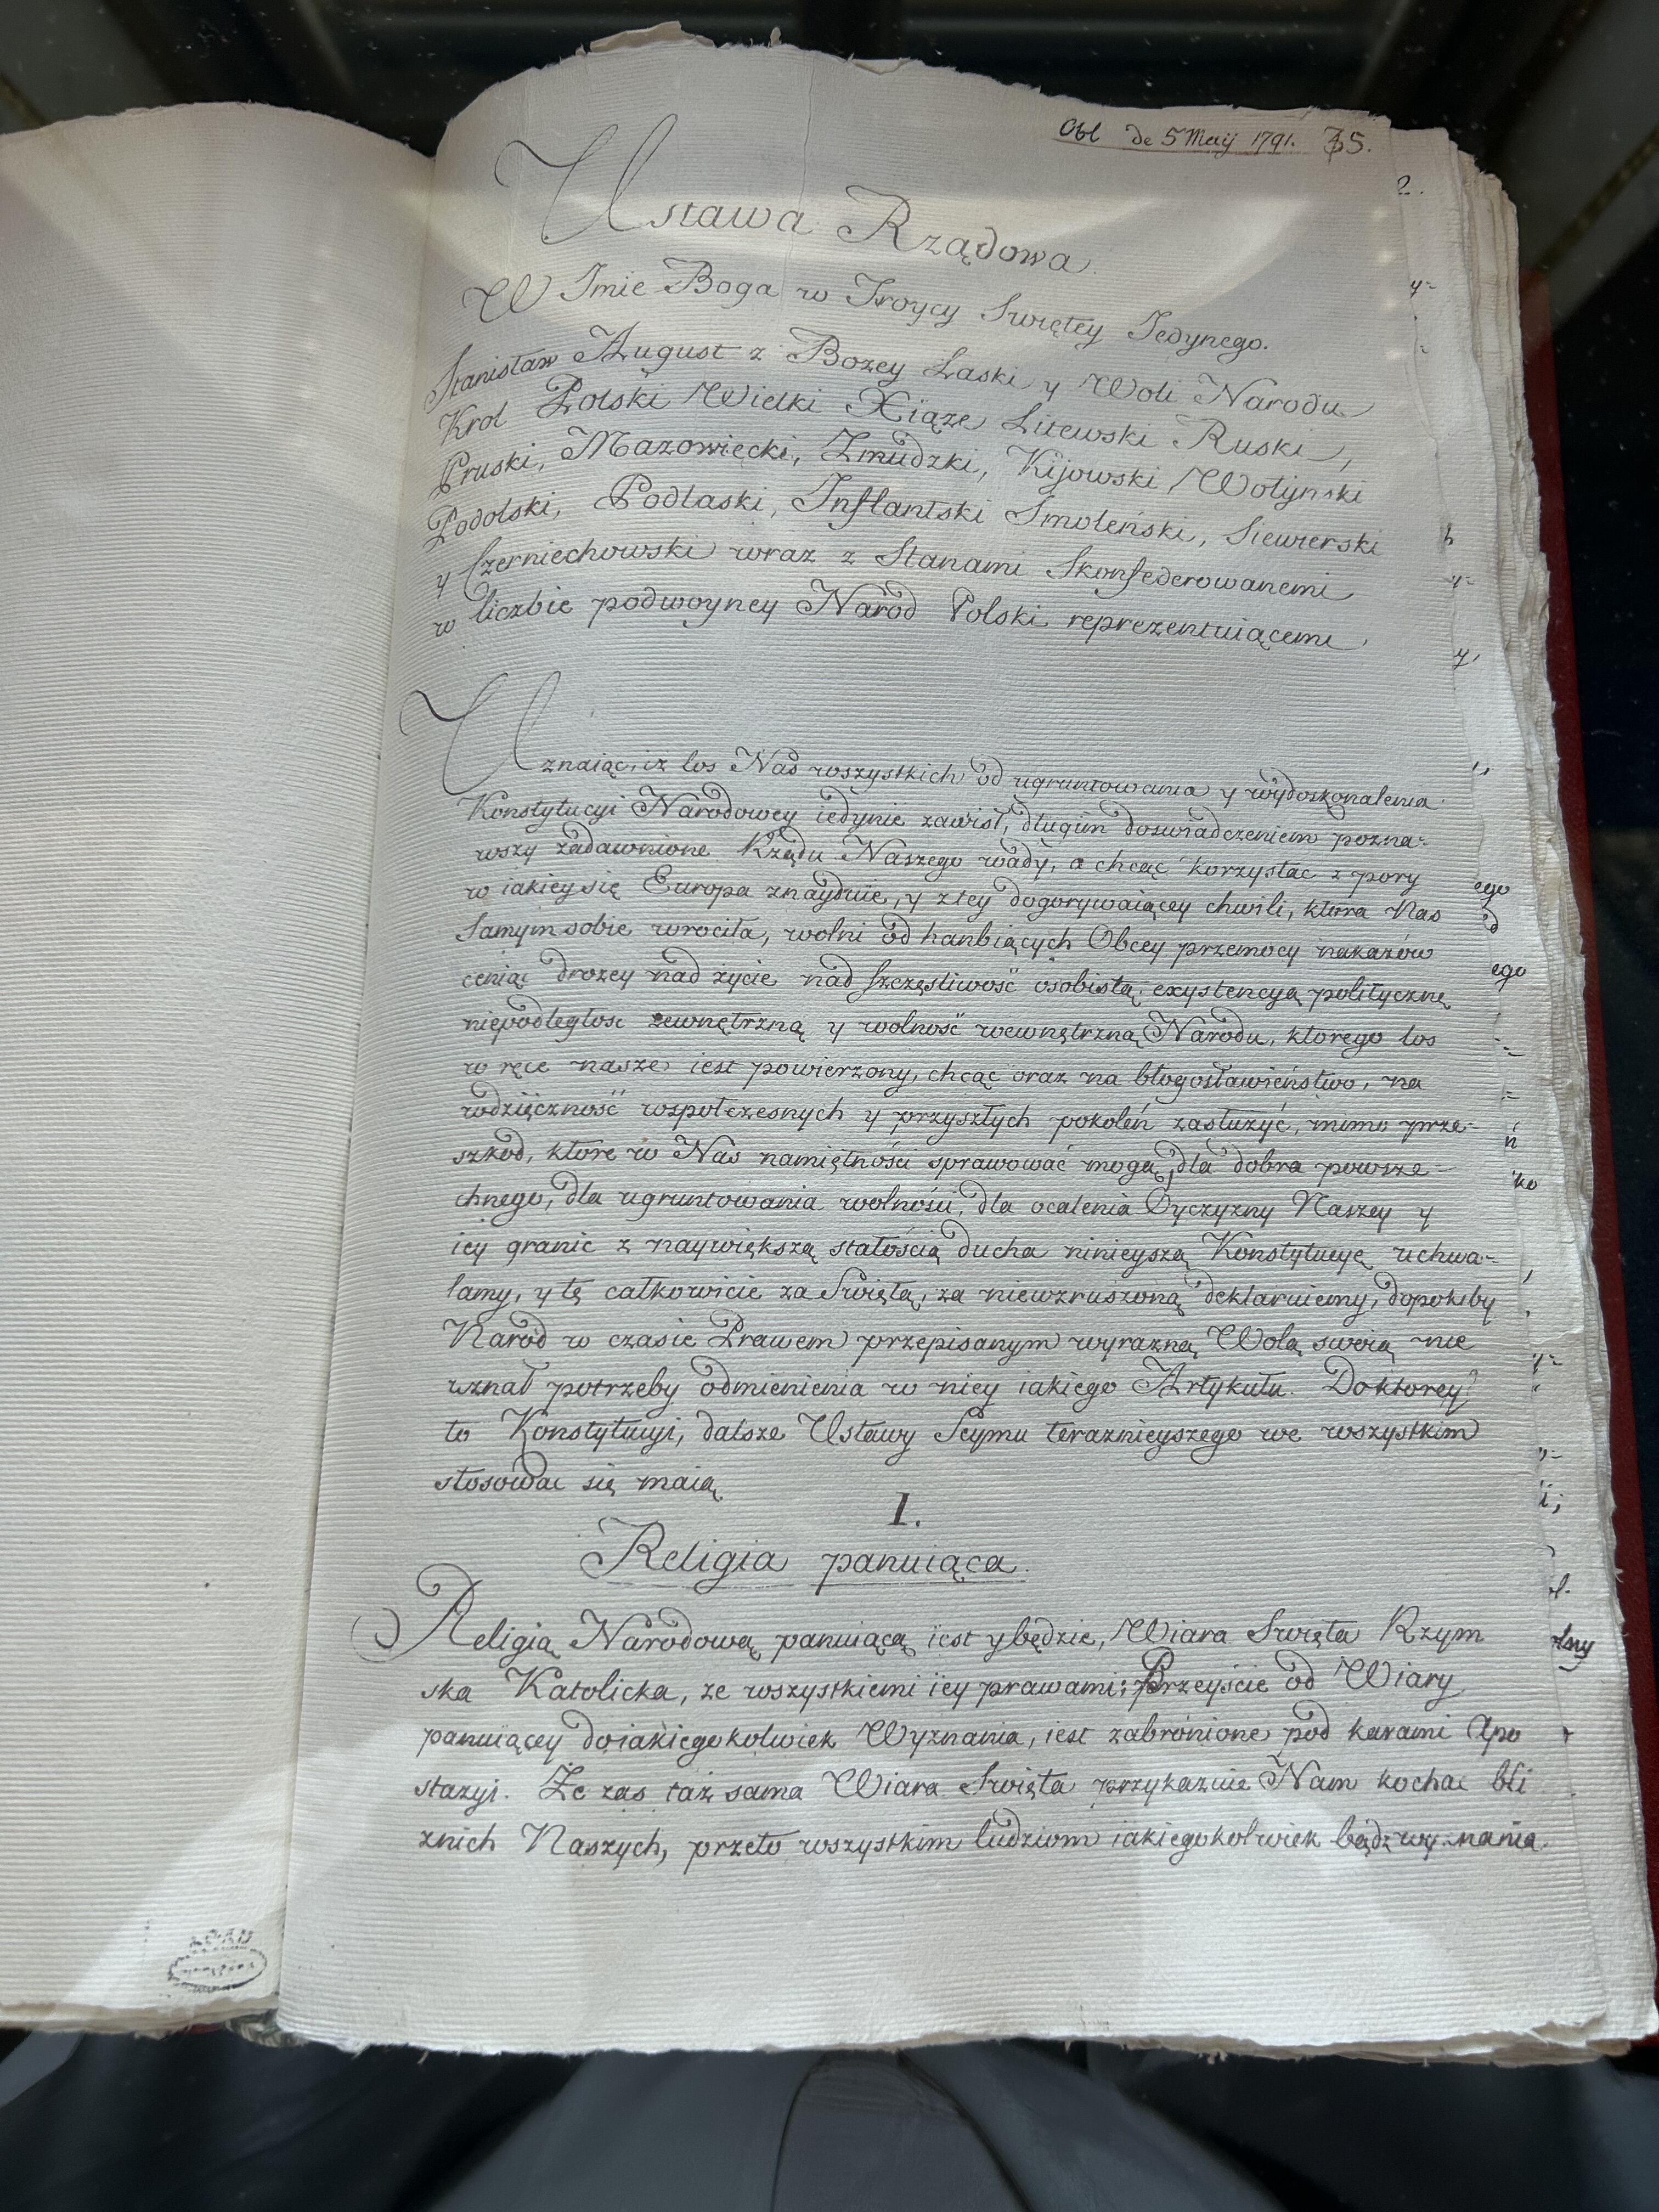 Obl de 5 Maij 1791. 35.
2.
Ustawa Rządowa.
W Jmie Boga w Troycy Swiętey Jedynego.
Stanisław August z Bozey Łaski y Woli Narodu
Krol Polski Wielki Xiąze Litewski Ruski,
Pruski, Mazowiecki, Zmudzki, Kijowski, Wołyński
Podolski, Podlaski, Inflantski Smoleński, Siewierski
y Czerniechowski wraz z Stanami Skonfederowanemi
w liczbie podwoyney Naród Polski reprezentuiącemi.
Uznaiąc, iz los Nas wszystkich od ugruntowania y wydoskonalenia
Konstytucyi Narodowey iedynie zawisł, długim doswiadczeniem pozna-
wszy zadawnione Rządu Naszego wady, a chcąc korzystac z pory
w iakiey się Europa znayduie, y z tey dogorywaiącey chwili, ktora Nas
samym sobie wrociła, wolni od hanbiących Obcey przemocy nakazów
ceniąc drozey nad życie nad szczęśliwość osobistą: exystencyą polityczną
niepodległosc zewnętrzną y wolność wewnętrzną Narodu, ktorego los
w ręce nasze iest powierzony, chcąc oraz na błogosławieństwo, na
wdzięczność wspołczesnych y przyszłych pokoleń zasłużyć, mimo prze-
szkod, ktore w Nas namiętności sprawować mogą, dla dobra powsze-
chnego, dla ugruntowania wolności, dla ocalenia Oyczyzny Naszey y
iey granic z naywiększą stałością ducha ninieyszą Konstytucyę uchwa-
lamy, y tę całkowicie za Swiętą, za niewzruszoną deklaruiemy, dopokiby
Naród w czasie Prawem przepisanym wyrazną Wolą swoią nie
uznał potrzeby odmienienia w niey iakiego Artykułu. Doktorey
to Konstytucyi, dalsze Ustawy Seymu terazniejszego we wszystkim
stosować się maią.
I.
Religia panuiąca.
Religią Narodową panuiącą iest y będzie, Wiara Swięta Rzym
ska Katolicka, ze wszystkiemi iey prawami; Przeyście od Wiary
panuiącey do iakiegokolwiek Wyznania, iest zabronione pod karami Apo
stazyi. Ze zas taż sama Wiara Swięta przykazuie Nam kochac bli
znich Naszych, przeto wszystkim ludziom iakiegokolwiek bądz wyznania